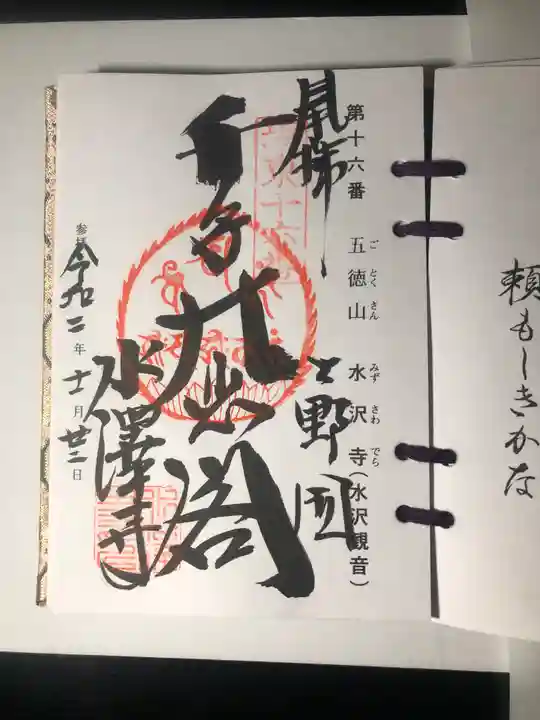 頼もしきかな
第十六番 五徳山 水沢寺(水沢観音)
ご とくさん みず さわ でら
奉拝
上野国
千手大悲閣
水澤寺
参拝 令和二年 十一月 廿三日